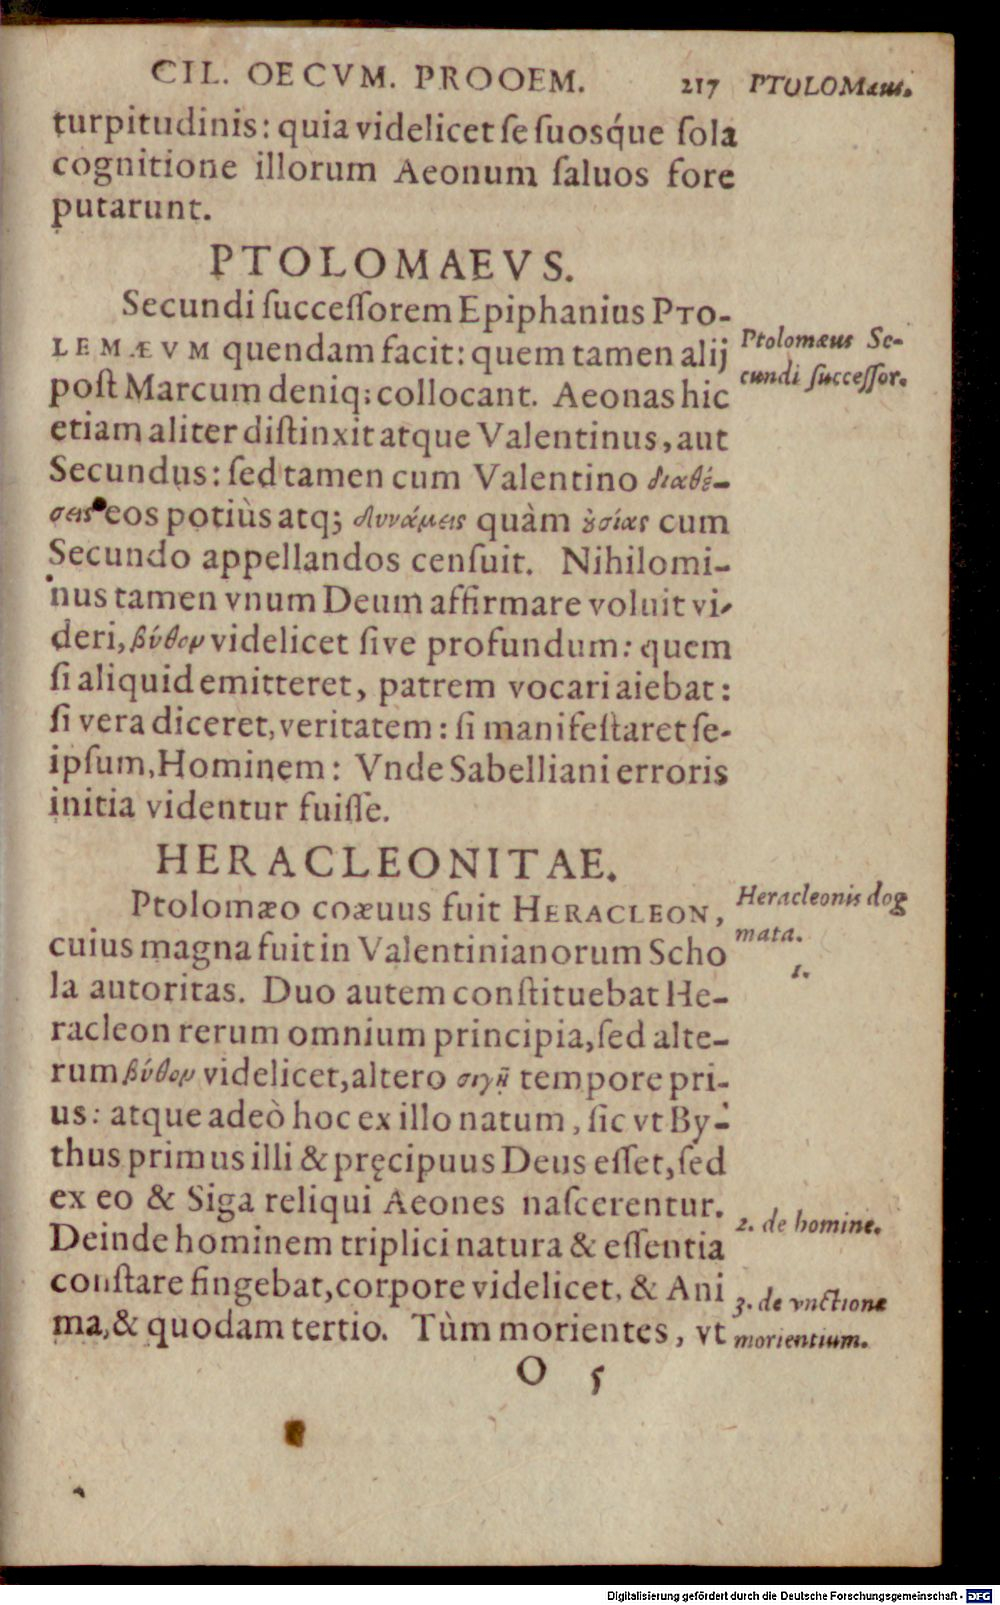 CIL. OECVM. PROOEM. 217 PTOLOMæus.
turpitudinis: quia videlicet ſe ſuosq́ue ſola
cognitione illorum Aeonum ſaluos fore
putarunt.
PTOLOMAEVS.
Secundi ſucceſſorem Epiphanius PTO-
LEMÆVM quendam facit: quem tamen alij
poſt Marcum deniq; collocant. Aeonas hic
etiam aliter diſtinxit atque Valentinus, aut
Secundus: ſed tamen cum Valentino διαθέ-
σεις eos potiùs atq; δυνάμεις quàm ȣ̓σίας cum
Secundo appellandos cenſuit. Nihilomi-
nus tamen vnum Deum affirmare voluit vi-
deri, βύθον videlicet ſive profundum: quem
ſi aliquid emitteret, patrem vocari aiebat:
ſi vera diceret, veritatem: ſi manifeſtaret ſe-
ipſum, Hominem: Vnde Sabelliani erroris
initia videntur fuiſſe.
Ptolomæus Se-
cundi ſucceſſor.
HERACLEONITAE.
Ptolomæo coæuus fuit HERACLEON,
cuius magna fuit in Valentinianorum Scho
la autoritas. Duo autem conſtituebat He-
racleon rerum omnium principia, ſed alte-
rum βύθον videlicet, altero σιγῇ tempore pri-
us: atque adeò hoc ex illo natum, ſic vt By-
thus primus illi & pręcipuus Deus eſſet, ſed
ex eo & Siga reliqui Aeones naſcerentur.
Deinde hominem triplici natura & eſſentia
conſtare fingebat, corpore videlicet, & Ani
ma, & quodam tertio. Tùm morientes, vt
Heracleonis dog
mata.
1.
2. de homine.
3. de vnctione
morientium.
O 5
Digitalisierung gefördert durch die Deutsche Forschungsgemeinschaft - DFG